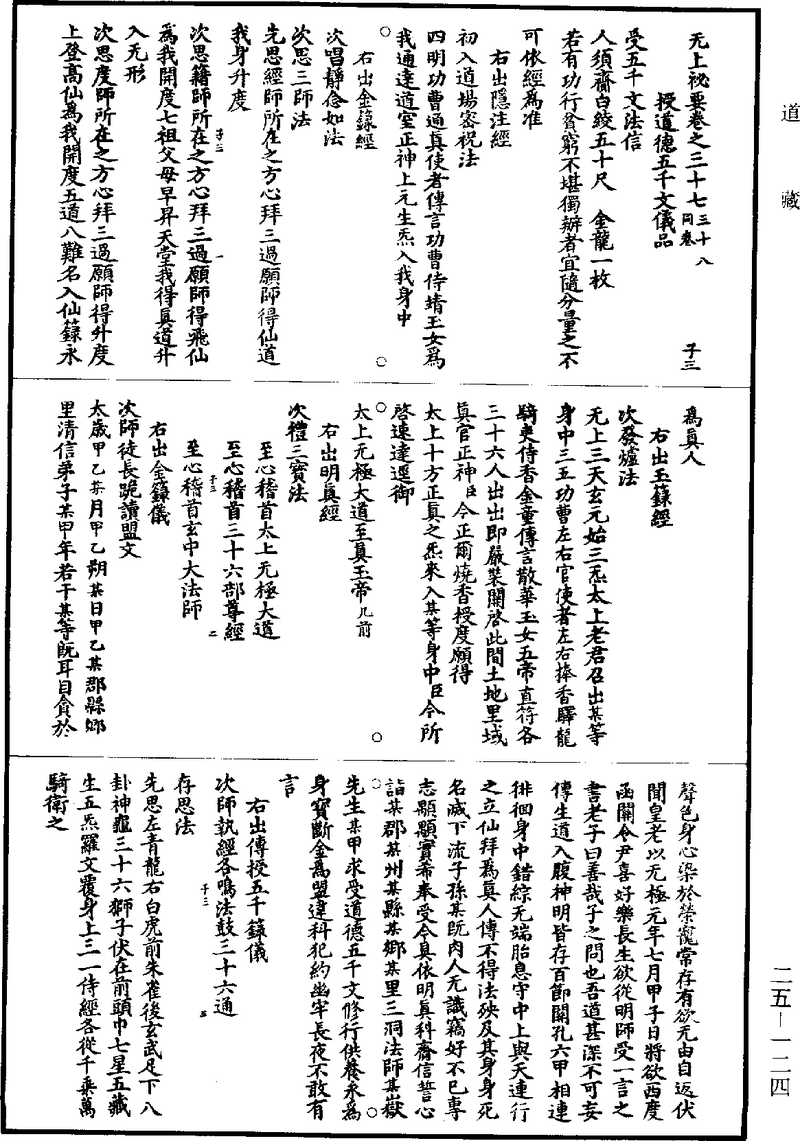 道藏
无上祕要卷之三十七 三十八同卷 子三
授道德五千文儀品
受五千文法信
人須齎白絞五十尺 金龍一枚
若有功行貧窮不堪獨辦者宜隨分量之不
可依經爲准
右出隱注經
初入道場密祝法
四明功曹通真使者傳言功曹侍靖玉女爲
我通達道室正神上元生炁入我身中
○ ○
右出金籙經
次唱靜念如法
次思三師法
先思經師所在之方心拜三過願師得仙道
我身升度
次思籍師所在之方心拜三過願師得飛仙
子三 一
爲我開度七祖父母早昇天堂我得真道升
入无形
次思度師所在之方心拜三過願師得升度
上登高仙爲我開度五道八難名入仙籙永
爲真人
右出玉籙經
次發爐法
无上三天玄元始三炁太上老君召出某等
身中三五功曹左右官使者左右捧香驛龍
騎吏侍香金童傳言散華玉女五帝直符各
三十六人出出即嚴裝關啓此間土地里域
真官正神臣今正爾燒香授度願得
太上十方正真之炁來入某等身中臣今所
啓速達逕御
○ ○
太上无極大道至真玉帝几前
右出明真經
次禮三寶法
至心稽首太上无極大道
至心稽首三十六部尊經
子三 二
至心稽首玄中大法師
右出金籙儀
次師徒長跪讀盟文
太歲甲乙某月甲乙朔某日甲乙某郡縣鄉
里清信弟子某甲年若干某等既耳目貪於
聲色身心染於榮寵常存有欲无由自返伏
聞皇老以无極元年七月甲子日將欲西度
函關令尹喜好樂長生欲從明師受一言之
書老子曰善哉子之問也吾道甚深不可妄
傳生道入腹神明皆存百節關孔六甲相連
徘徊身中錯綜无端胎息守中上與天連行
之立仙拜爲真人傳不得法殃及其身身死
名滅下流子孫某既肉人无識竊好不已專
志顒顒實希奉受今具依明真科齋信誓心
詣某郡某州某縣某鄉某里三洞法師某嶽
○ ○
先生某甲求受道德五千文修行供養永爲
身寶斷金爲盟違科犯約幽牢長夜不敢有
言
右出傳授五千籙儀
次師執經各鳴法鼓三十六通
子三 三
存思法
先思左青龍右白虎前朱雀後玄武足下八
卦神龜三十六獅子伏在前頭巾七星五藏
生五炁羅文覆身上三一侍經各從千乘萬
騎衛之
二五—一二四